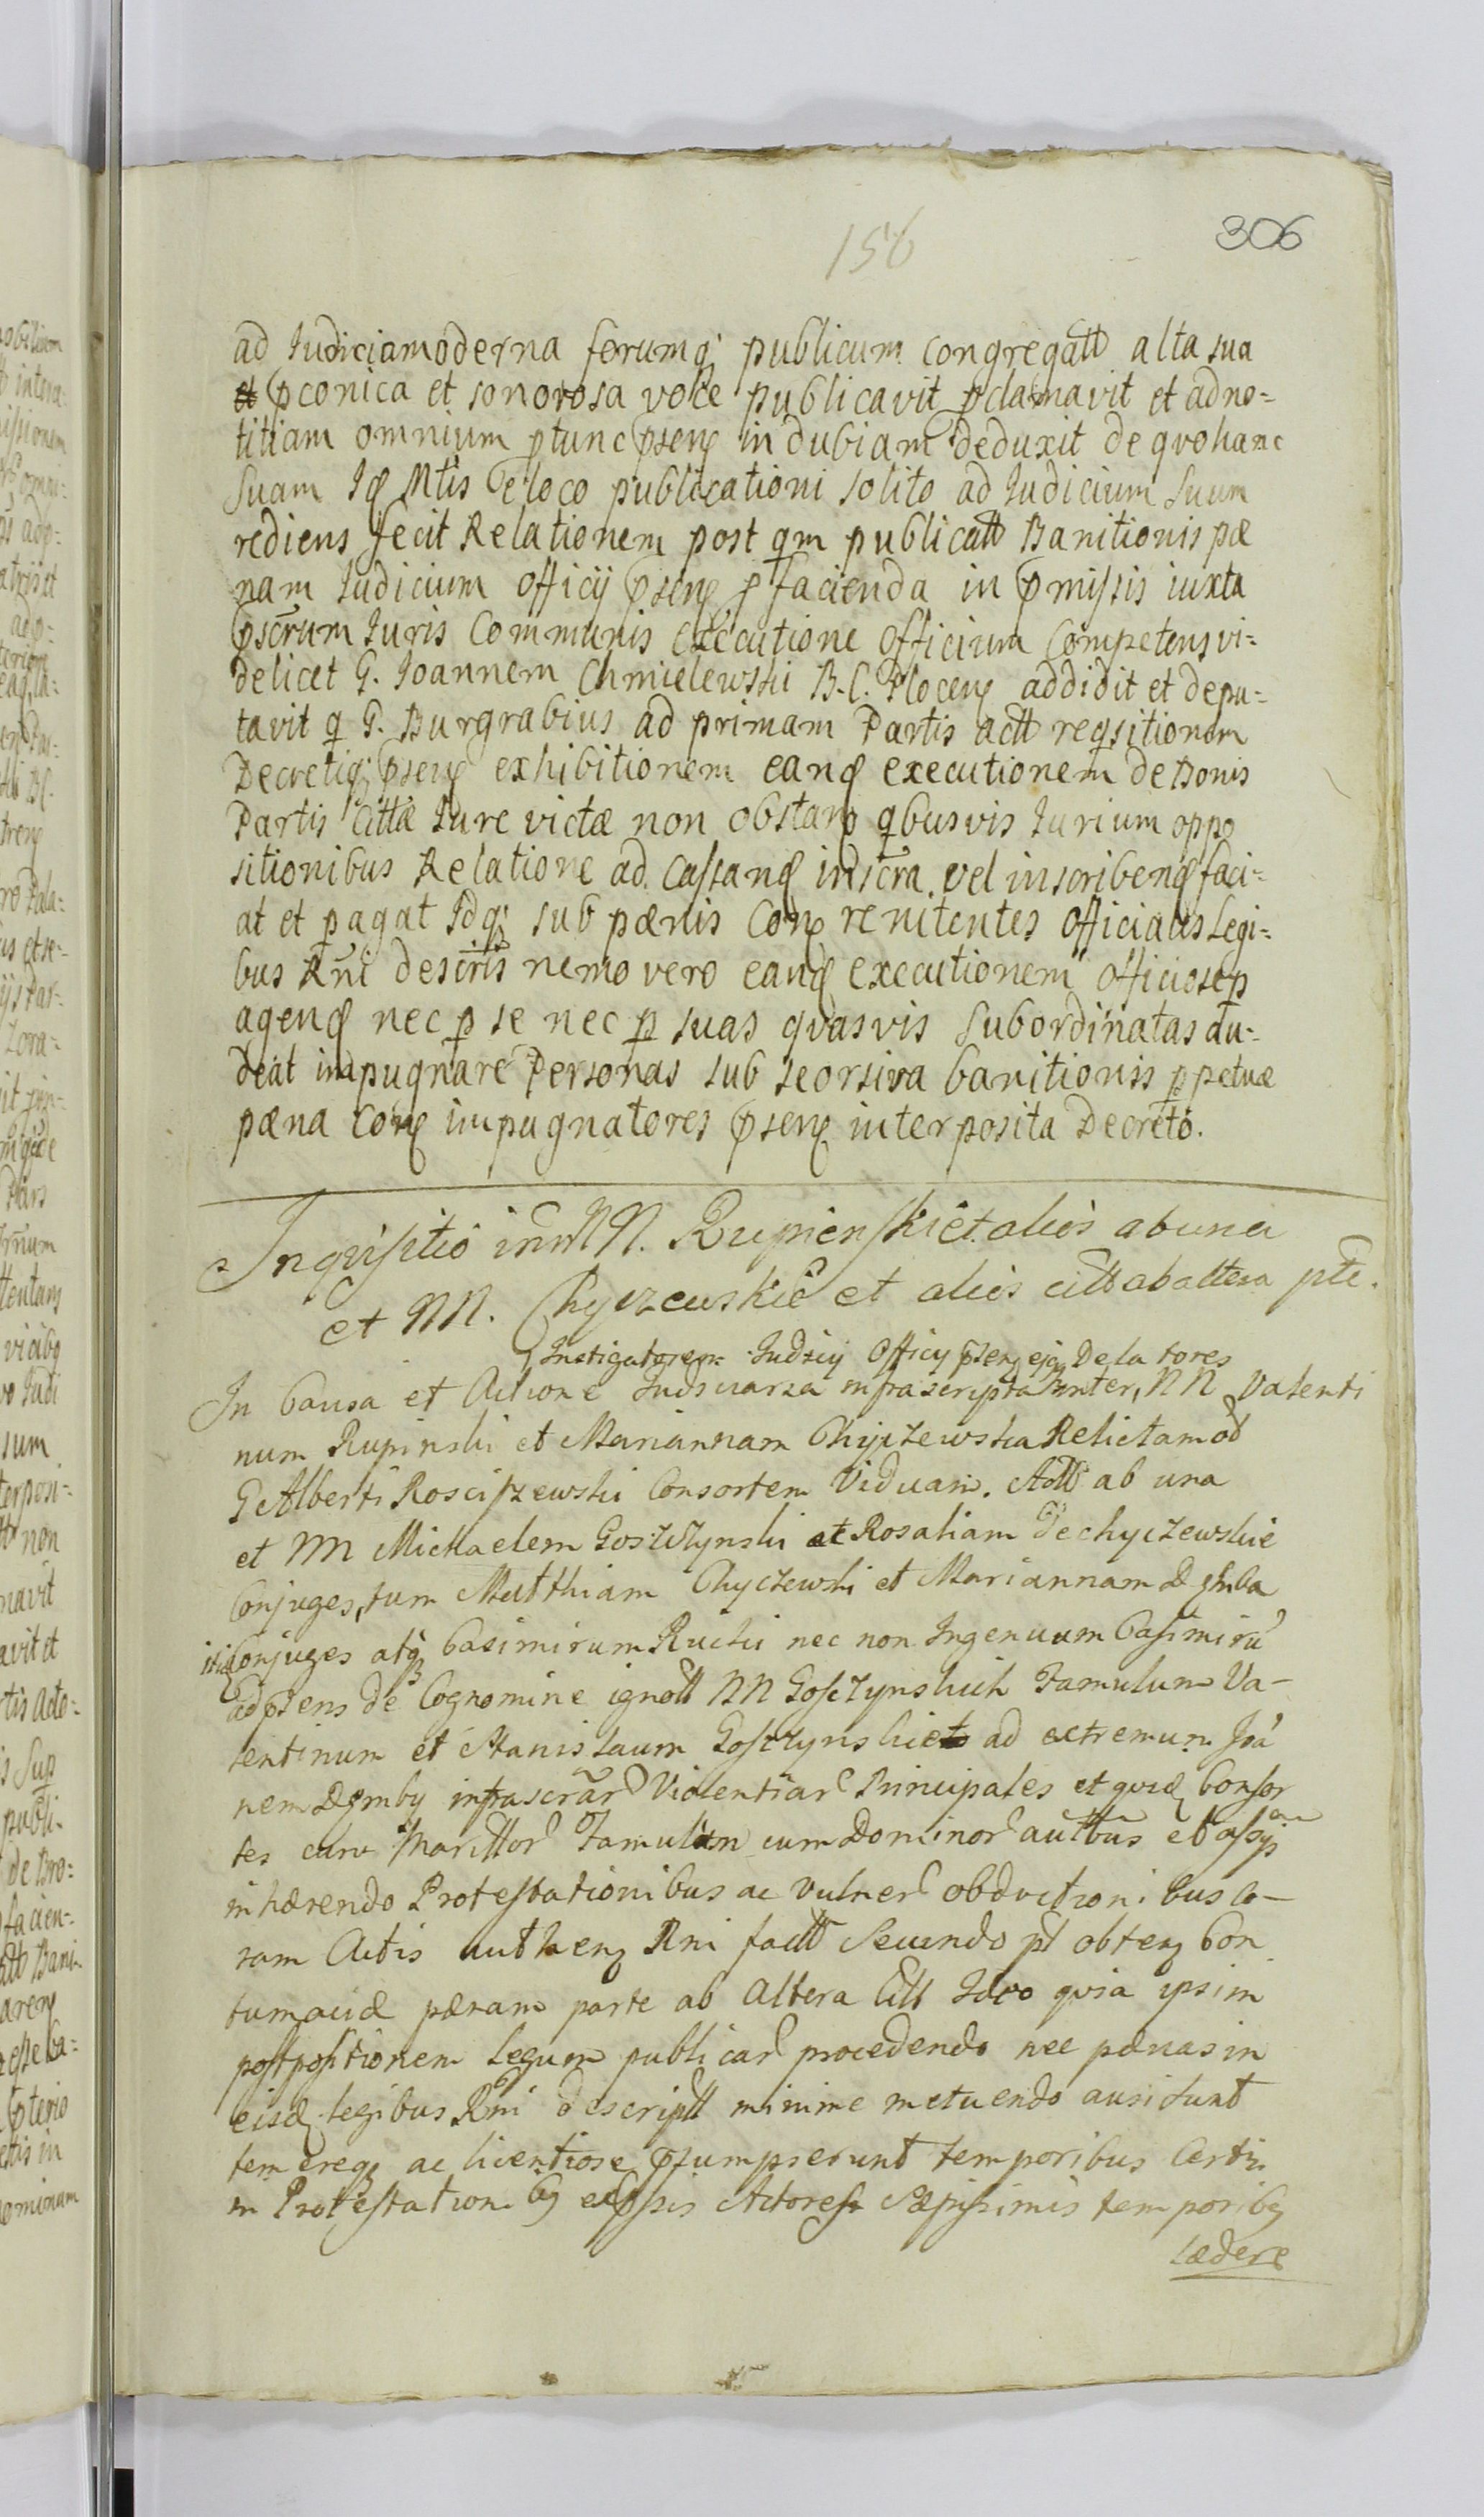 156
306
ad Judicia moderna forumq; publicum congregatt alta sua
et pconica et sonorosa voce publicavit pclamavit et ad no=
titiam omnium ptunc psen in dubiam deduxit de qvo hanc
suam Jd Mtis e loco publicationi solito ad Judicium suum
rediens fecit Relationem post qm publicatt Banitionis pæ
nam Judicium officij psen p facienda in pmissis iuxta
pscrum Juris communis executione officium competens vi=
delicet G. Joannem Chmielewski B. C. Plocen addidit et depu=
tavit q G. Burgrabius ad primam Partis actt reqsitionem
Decretiq; psen exhibitionem eand executionem de bonis
Partis Citta Jure victæ non obstan qbusvis Jurium oppo
sitionibus Relatione ad cassand indscra vel inscribend faci=
at et pagat Idq; sub pænis con renitentes officiales Legi=
bus Rni descris nemo vero eand executionem officiose p
agend nec p se nec p suas qvasvis subordinatas au=
deat impugnare Personas sub seorsiva banitionis ppetuæ
pæna con impugnatores psen interposita Decreto.
Inqvisitio in NN. Rupienskie et alios ab una
et NN. Chyczewskie et alios citt ab altera pte.
Instigatorem Judicij Officij psen ejq Delatores
In Causa et Actione Judiciaria infrascripta inter, NN Valenti
num Rupinski et Mariannam Chyczewska Relictam od
G Alberti Rosciszewski Consortem Viduam. Actt ab una
et NN Michaelem Goszczynski et Rosaliam de Chyczewskie
Conjuges, tum Matthiam Chyczewski et Mariannam Dęmba
itid Conjuges atq Casimirum Rucki nec non Ingenuum Casimirū
ad psens de Cognomine ignott NN Goszczynskich Famulum Va-
lentinum et Stanislaum Goszczynskie ad extremum Joā
nem Dęmby infrascrar Violentiar Principales et qvid Consor
tes cum Marittor Famulum cum Dominor auttbus et assji
inhærendo Protestationibus ac Vulner obductionibus Co-
ram Actis authen Rni factt Secundo pt obten Con
tumaciæ pænam parte ab altera Citt Ideo qvia ipsi in
postpositionem Legum publicar procedendo nec pænas in
eisd legibus Rni descriptt minime metuendo ausi sunt
temereq ac licentiose psumpserunt temporibus Certis
in Protestationibq expssis Actores Sæpissimis temporibq
lædere